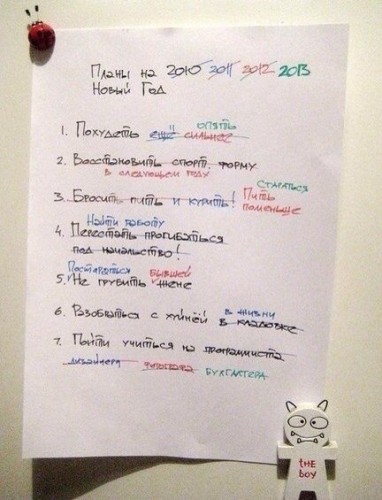 Планы на 2010 2011 2012 2013
Новый Год
опять
1. Похудеть ещё сильнее
2. Восстановить спорт. форму
в следующем году
стараться
3. Бросить пить и курить! Пить
поменьше
Найти работу
4. Перестать прогибаться
под начальство!
Постараться бывшей
5. Не грубить жене
в жизни
6. Разобраться с хуйнёй в кладовке
7. Пойти учиться на программиста
дизайнера философа бухгалтера
the
boy